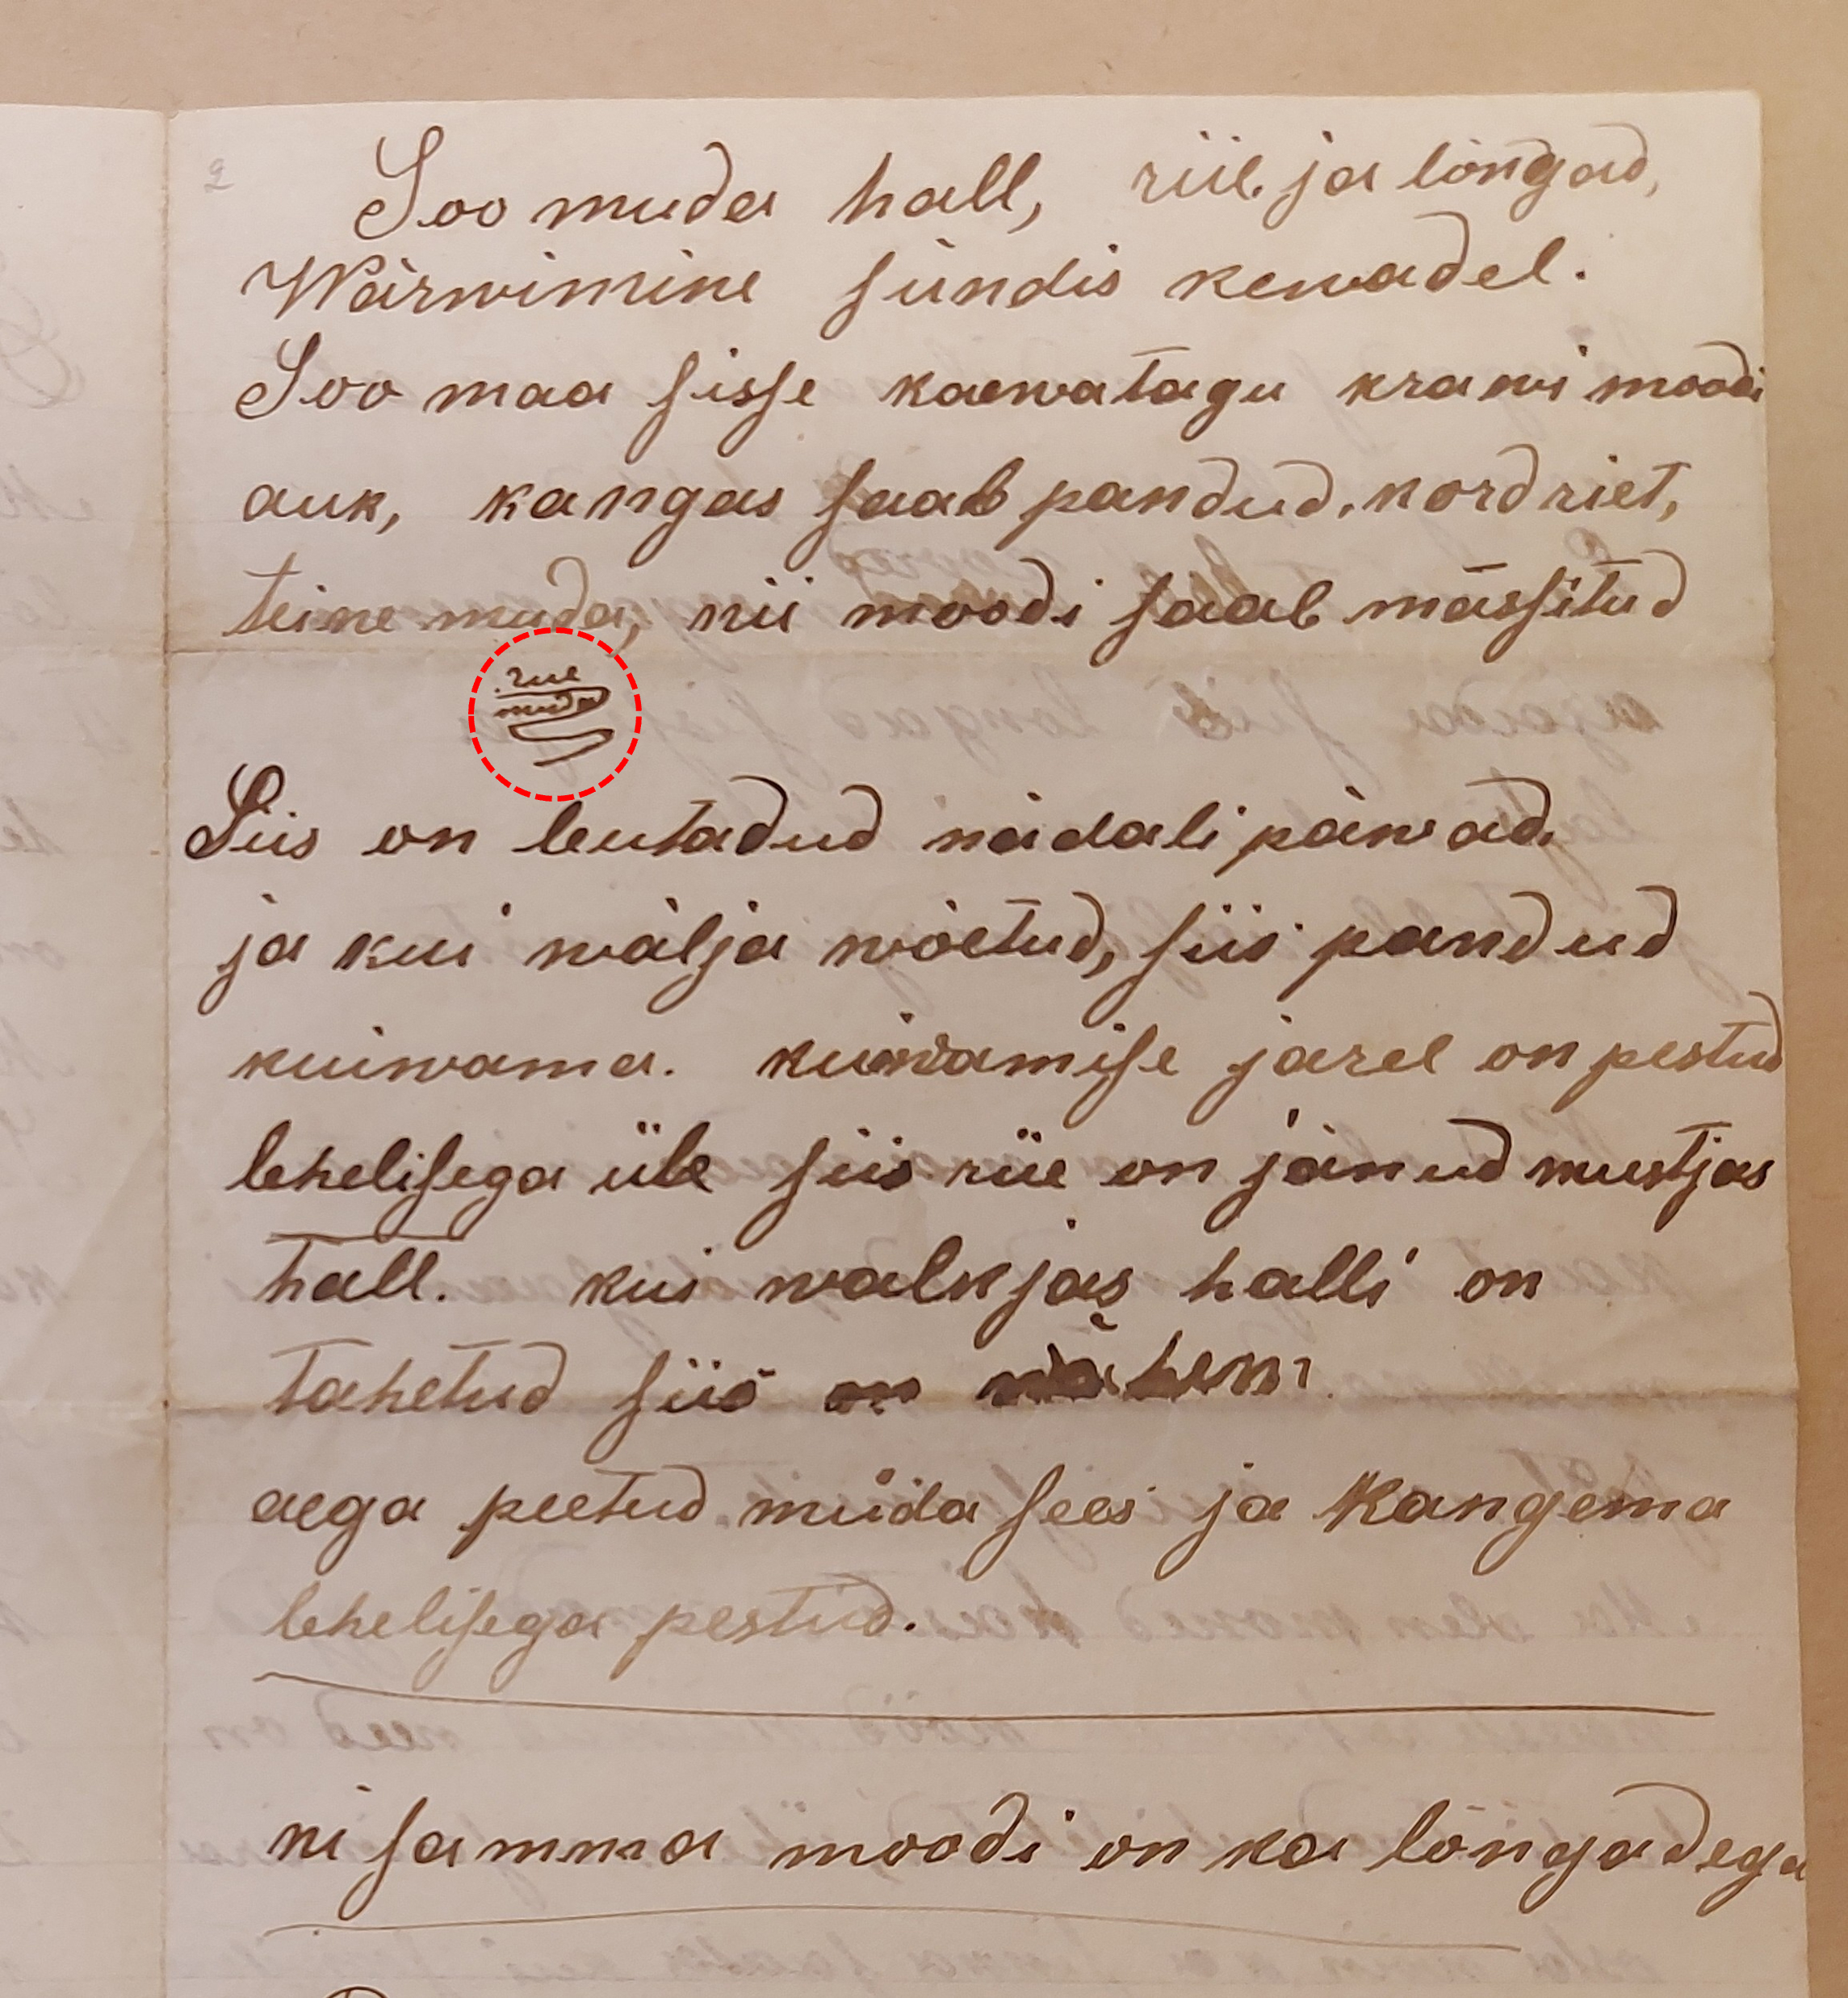 2
Soo muda hall, riie ja lõngad,
Wärwimine sündis kewadel.
Soo maa sisse kaewatagu krawi moodi
auk, kangas saab pandud, kord riet,
teine muda, nii moodi saab mässitud
rue
muda
Siis on leutadud nädali päiwad
ja kui wälja wõetud, siis pandud
kuiwama. kuiwamise järel on pestud
lehelisega üle siis riie on jänud mustjas
hall. kui walkjas halli on
tahetud siis on wähem
aega peetud muda sees ja Kangema
lehelisega pestud.
ni samma moodi on ka lõngadega